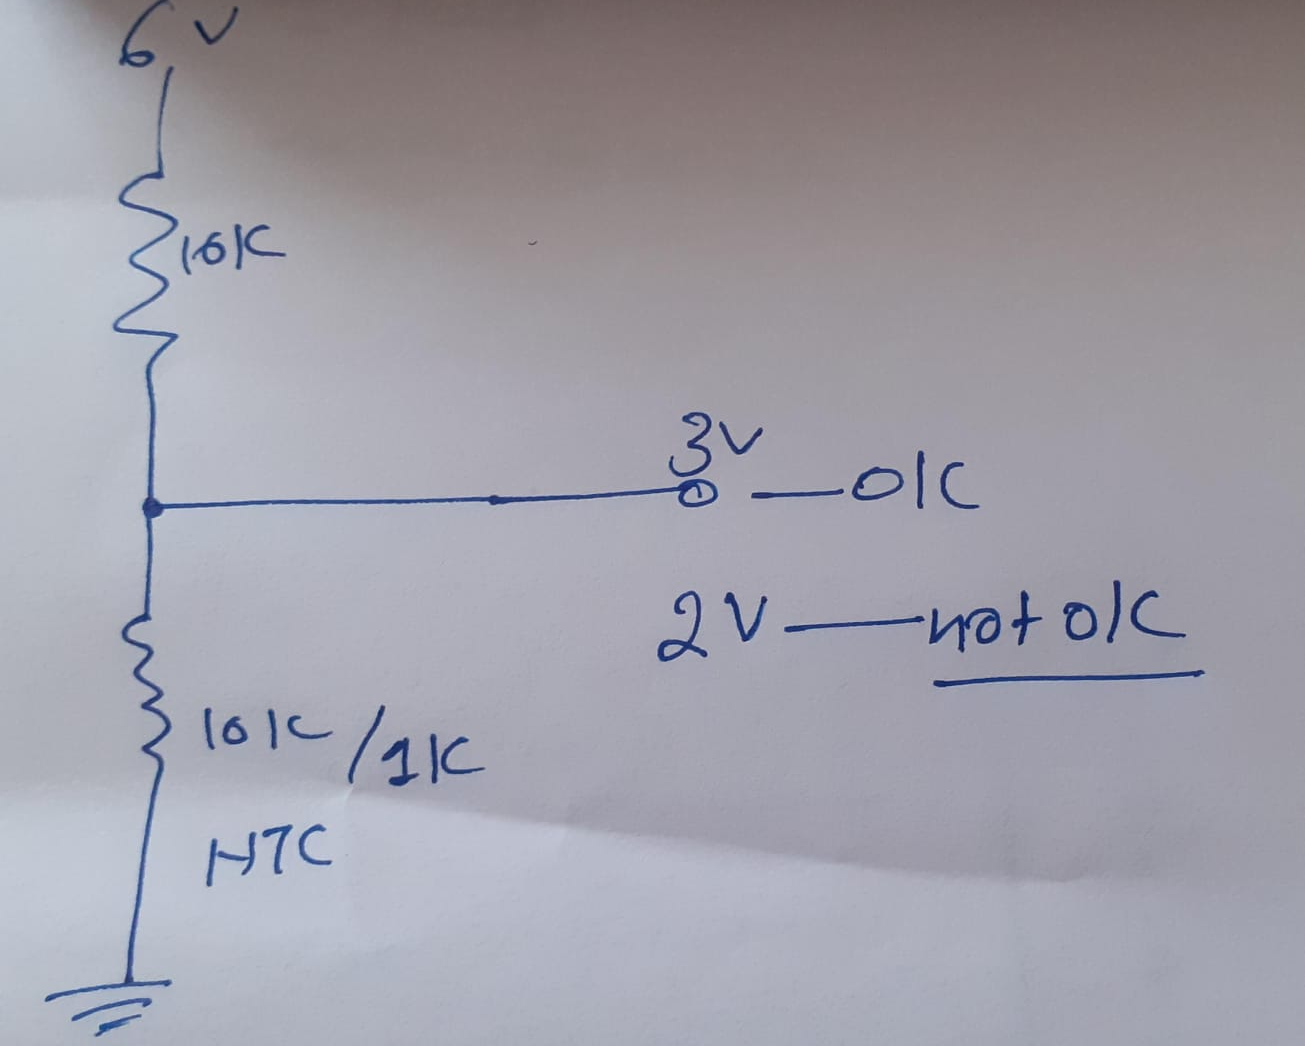 6V
10K
3V — OK
2V — not OK
10K/1K
NTC